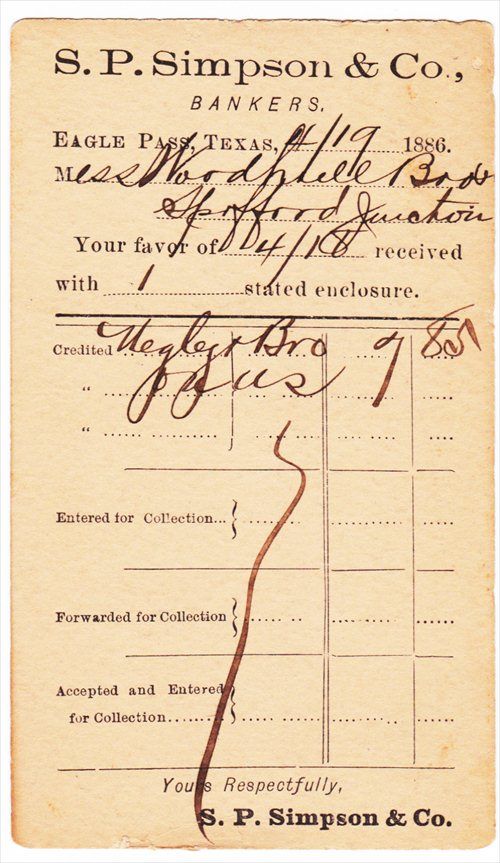 S. P. Simpson & Co.,
BANKERS,
EAGLE PASS, TEXAS, 4/19 1886.
Mess Bros
Spofford Junction
Your favor of 4/18 received
with 1 stated enclosure.
Credited Bro 7 85
" on us
"
Entered for Collection...
Forwarded for Collection
Accepted and Entered
for Collection........
Yours Respectfully,
S. P. Simpson & Co.